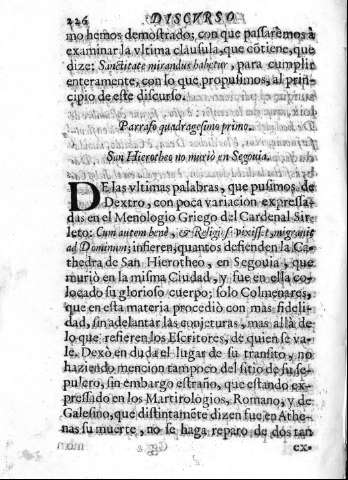 226 DISCVRSO
mo hemos demostrado; con que passarèmos à
examinar la vltima clausula, que cõtiene, que
dize: Sanctitate mirandus habetur, para cumplir
enteramente, con lo que propusimos, al prin-
cipio de este discurso.
Parrafo quadragesimo primo.
San Hierotheo no muriò en Segovia.
DE las vltimas palabras, que pusimos de
Dextro, con poca variacion expressa-
das en el Menologio Griego del Cardenal Sir-
leto: Cum autem benè, & Religiosè vixisset, migravit
ad Dominum; infieren, quantos defienden la Ca-
thedra de San Hierotheo, en Segovia, que
muriò en la misma Ciudad, y fue en ella co-
locado su glorioso cuerpo; solo Colmenares,
que en esta materia procediò con mas fideli-
dad, sin adelantar las conjeturas, mas allà de
lo que refieren los Escritores, de quien se va-
le. Dexò en duda el lugar de su transito, no
haziendo mencion tampoco del sitio de su se-
pulcro, sin embargo estraño, que estando ex-
pressado en los Martirologios, Romano, y de
Galesino, que distintamẽte dizen fue en Athe-
nas su muerte, no se haga reparo de dos tan
ex-